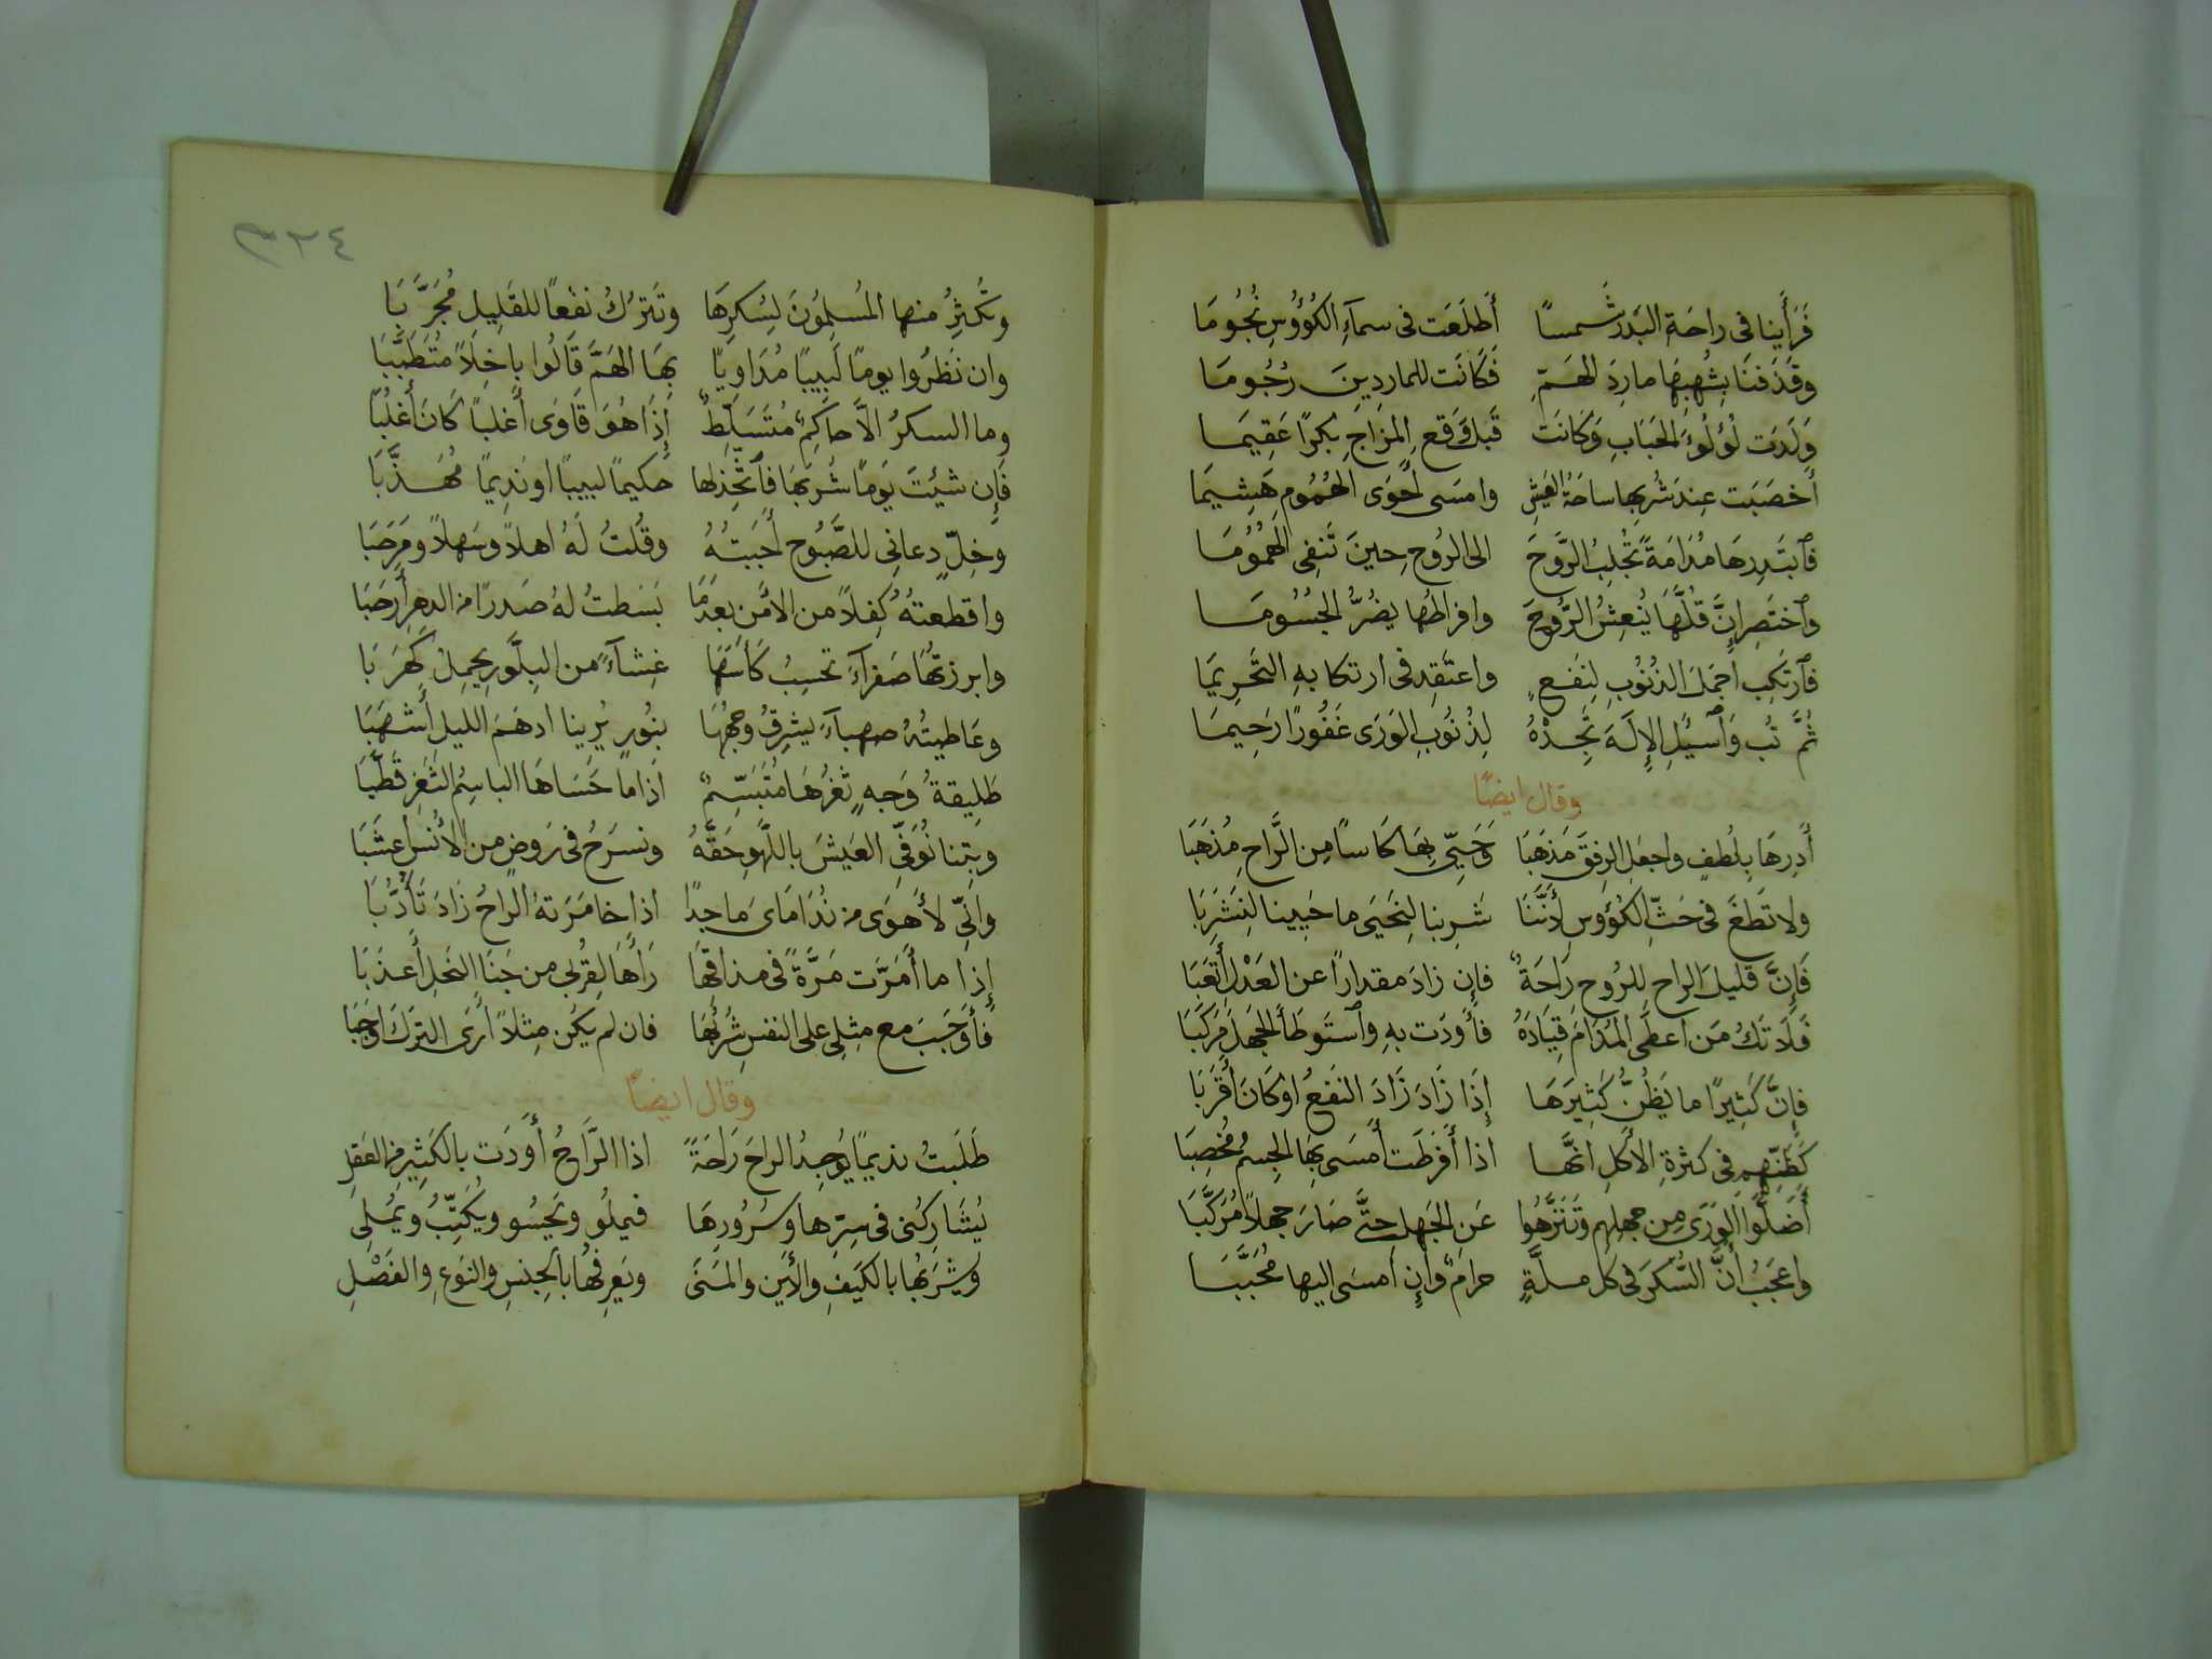 فَرَأَينا فى راحَةِ البَدرِ شَمسًا أَطلَعَت فى سمآءِ الكُؤُوسِ نُجُومَا
وقَذَفنَا بِشُهبِهَا مارِدَ الهَمِّ فَكَانَت للمارِدِينَ رُجُومَا
وَلَدَت لُؤلُؤَ الحَبَابِ وَكَانَت قَبلَ وَقعِ المِزَاجِ بِكرًا عَقِيمَا
أَخصَبَت عِندَ شُربِها ساحَةُ العَيشِ وامسَى أَحوَى الهُمُومِ هَشِيمَا
فَٱبتَدِرهَا مُدَامَةً تَجلِبُ الرَّوحَ الى الرُوحِ حِينَ تَنفِى الهُمُومَا
وَٱختَصِر إِنَّ قُلَّهَا يُنعِشُ الرُّوحَ وافراطُها يضُرُّ الجُسُومَا
فَٱرتَكِب أَجمَلَ الذنُوبِ لِنَفعٍ واعتَقِد فى ارتكابهِ التَحرِيمَا
ثُمَّ تُب وَٱسئَلِ الإِلَهَ تَجِدْهُ لِذنُوبِ الوَرَى غَفُورًا رَحِيمَا
وقال ايضًا
أَدِرهَا بِلُطفٍ واجعَلِ الرِفقَ مَذهَبَا وَحَيِّى بِهَا كَاسًا مِنَ الرَّاحِ مُذهَبَا
ولا تَطغَ فى حَثِّ الكُؤوسِ لِأَنَّنَا شَرِبنا لِنَحيَى ما حَيِينا لِنَشرَبَا
فَإِنَّ قَليلَ الراحِ للرُوحِ رَاحَةٌ فإِن زادَ مقدارًا عن العَدْلِ أَتعَبَا
فَلَا تَكُ مَن اعطَى المُدَامَ قِيَادَهُ فأَودَت بهِ وٱستَوطَأَ الجَهلَ مَركَبَا
فإِنَّ كَثِيرًا ما يَظُنُّ كَثِيرَهَا إِذَا زَادَ زَادَ النفعُ او كَانَ أَقرَبَا
كَظَنِّهِمِ فى كثرةِ الأَكلِ انَّها اذا أَفرَطَت أَمسَى بِهَا الجِسمُ مُخصِبَا
أَضَلُّوا الوَرَى مِن جهلِهِم وتَنَزَّهُوا عَنِ الجَهلِ حتَّى صَارَ جهلًا مُرَكَّبَا
واعجَبُ أَنَّ السُّكرَ فى كل مِلَّةٍ حرامٌ وإِن أَمسَى اليها مُحَبَّبَا
٣٢٤
وتُكثِرُ منها المُسلِمُونَ لِسُكرِهَا وتَترُكُ نفعًا للقَلِيلِ مُجَرَّبَا
وان نَظَرُوا يومًا لَبِيبًا مُدَاوِيًا بِهَا الهَمَّ قَالُوا باخِلًا مُتَطَبِّبَا
وما السكرُ الَّا حاكمٌ مُتَسَلِّطٌ إِذَا هُوَ قَاوَى أَغلبًا كَانَ أَغلَبَا
فَإِن شئِتَ يَومًا شُربَهَا فٱتَّخِذ لها حَكيمًا لبيبًا او نَدِيمًا مُهَذَّبَا
وخِلٍّ دعانِى للصَّبُوحِ أَجَبتُهُ وقُلتُ لَهُ اهلًا وسَهلًا ومَرحَبَا
واقطعتهُ كِفلًا من الأَمنِ بعدَمَا بَسَطتُ لهُ صَدرًا من الدهرِ أَرحَبَا
وابرزتُها صَفرآءَ تحسِبُ كَأسَهَا غِشآءً من البِلَّورِ يحمِلُ كَهرَبَا
وعَاطيتُهُ صهبآءَ يشرِقُ وجهُهَا بنُورٍ يُرِينا ادهَمَ الليلِ أَشهَبَا
طَلِيقةُ وَجهٍ ثَغرُهَا مُتَبَسِّمٌ اذا ما حَسَاهَا الباسِمُ الثَغرِ قَطَّبَا
وبِتنا نُوَفِّى العَيشَ باللَّهوِ حَقَّهُ ونسرَحُ فى رَوضٍ من الأُنسِ أَعشَبَا
وانِّى لأَهوَى من نُدَامَاىَ مَاجِدًا اذا خامَرَتهُ الراحُ زَادَ تَأَدُّبَا
إِذا ما أَمَرَّت مَرَّةً فى مذاقِهَا رَأَهَا لِقُربى من جَنَا النحلِ أَعذَبَا
فأَوجَبَ مع مثلِى على النفسِ شُربَهَا فان لم يَكُن مِثلًا أَرَى التركَ أَوجَبَا
وقال ايضًا
طَلَبتُ نديمًا يُوجِدُ الراحَ رَاحَةً اذا الرَّاحُ أَودَت بالكَثِيرِ من العَقلِ
يُشَارِكُنى فى سِرِّها وسُرُورِهَا فيملُو ويَحسُو ويُكَتِّبُ ويُملِى
ويشرَبُها بالكَيفِ والأَينِ والمَتَى ويَعرِفُها بالجِنسِ والنوعِ والفَصْلِ